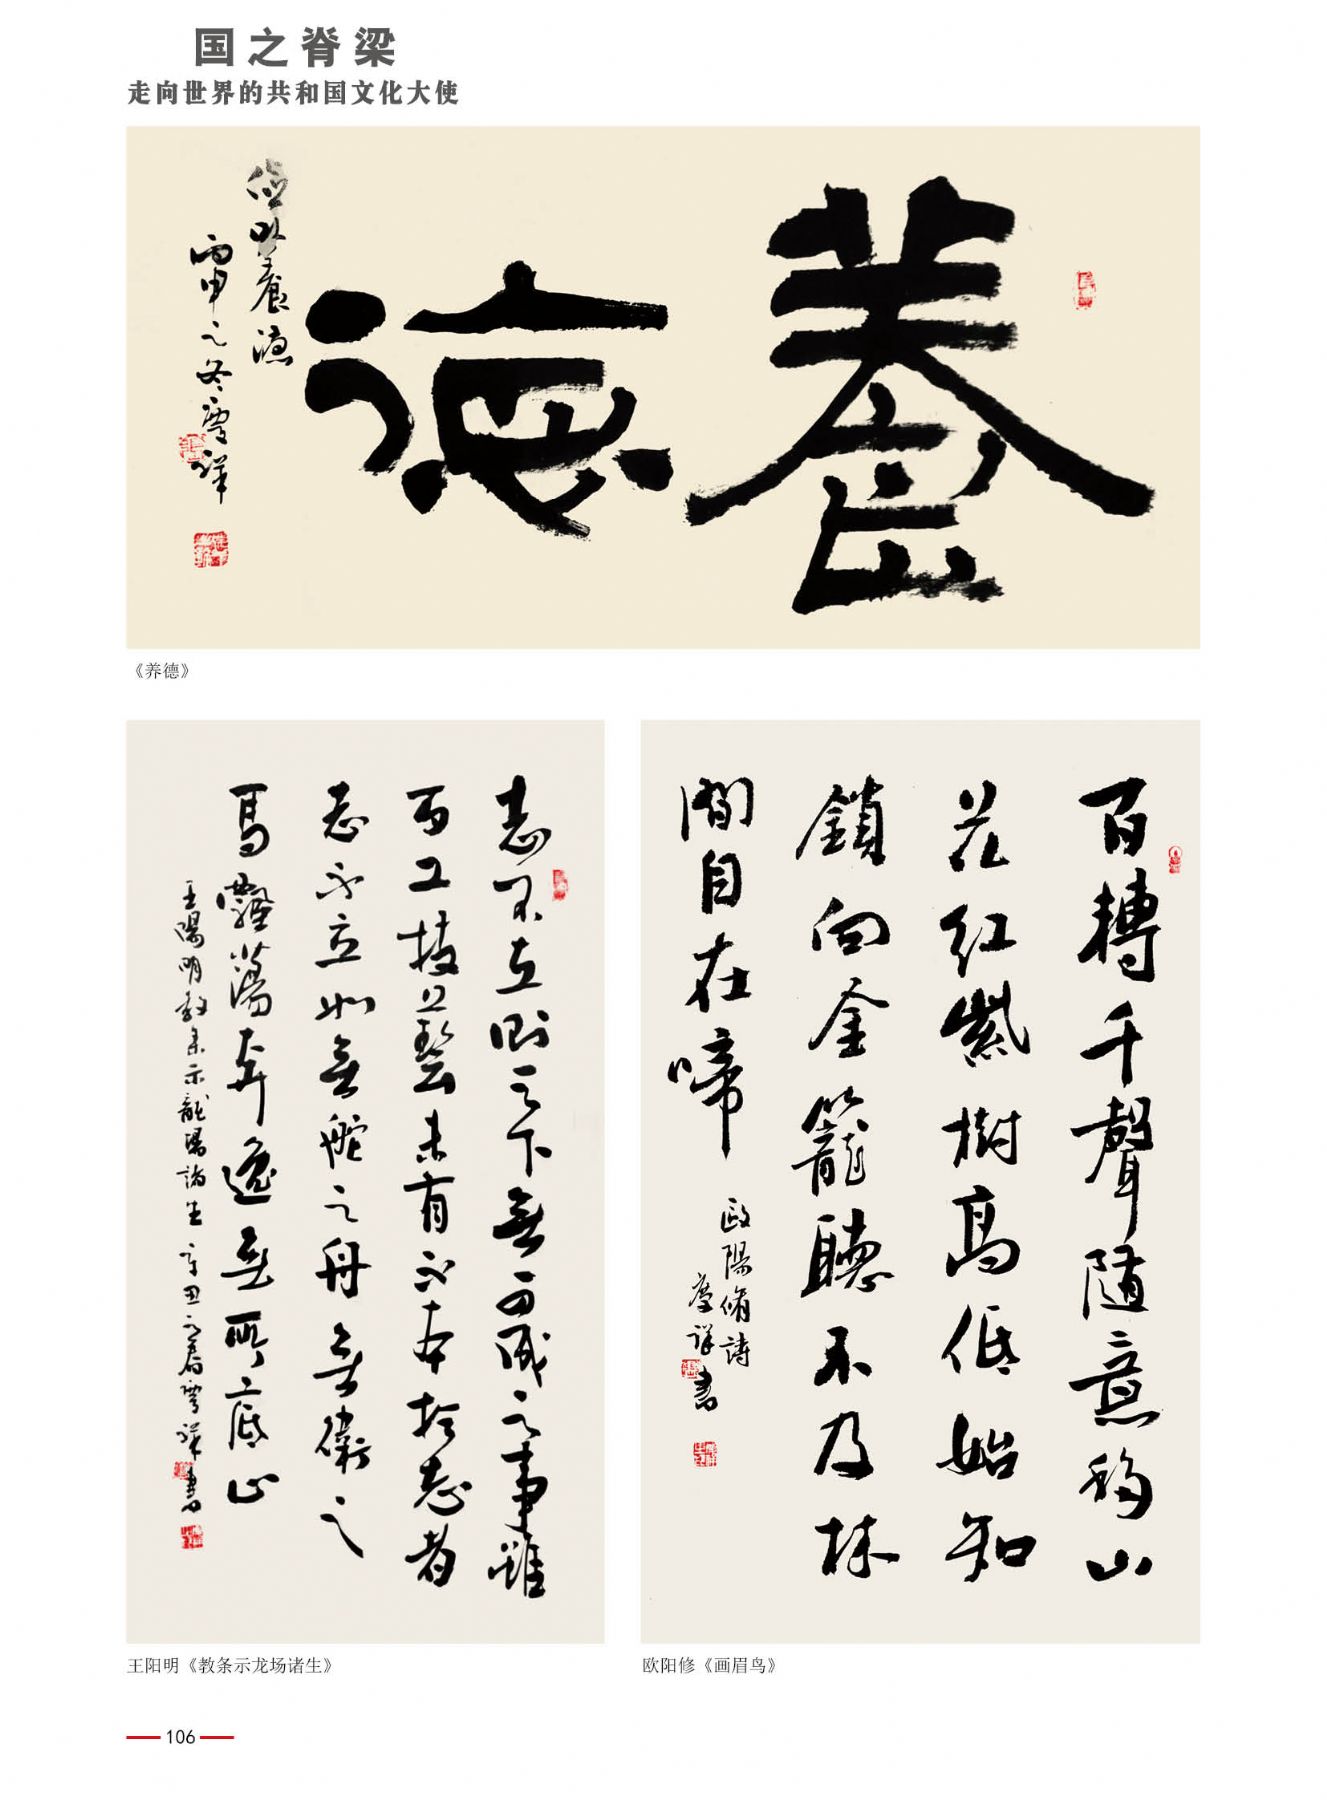 国之脊梁
走向世界的共和国文化大使
養德
俭以養德
丙申之冬 祥
《养德》
志不立則天下無可成之事雖
百工技藝未有不本於志者
志不立如無舵之舟無銜之
馬飄蕩奔逸無所底止
王陽明教条示龍場諸生 辛丑之春 祥書
王阳明《教条示龙场诸生》
百轉千聲随意移山
花紅紫樹高低始知
鎖向金籠聽不及林
間自在啼
歐陽脩詩
祥書
欧阳修《画眉鸟》
106